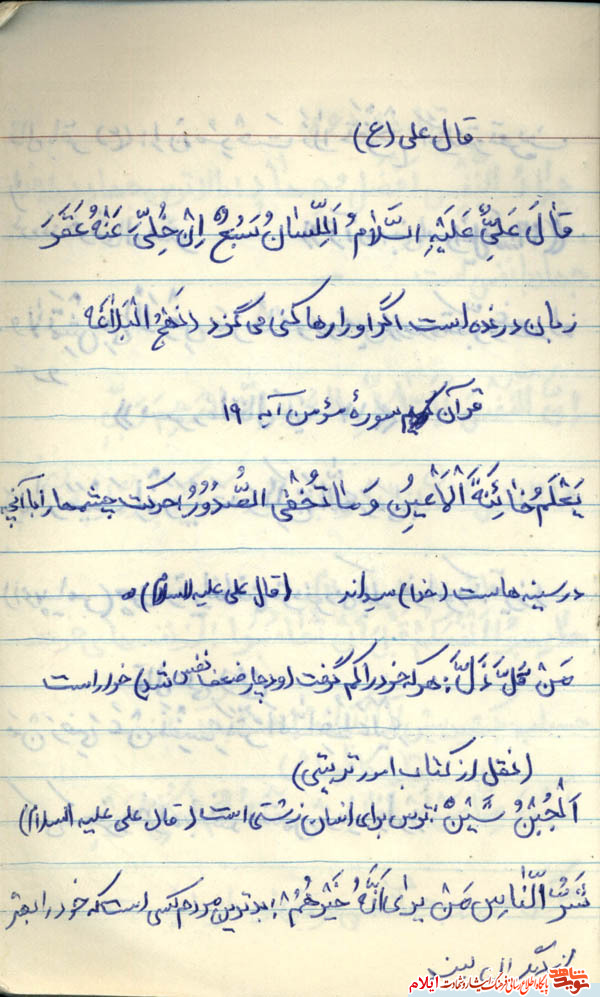 قال علی (ع)
قٰالَ عَلِیٌّ عَلَیْهِ السَّلٰامُ اَلِلّسٰانُ سَبُعٌ اِنْ خُلِّیَ عَنْهُ عَقَرَ
زبان درنده است اگر او را رها کنی می گزد (نَهْجُ الْبَلاٰغَه
قرآن کریم سورهٔ مؤمن آیه ۱۹
یَعْلَمُ خٰائِنَةَ اْلاَعْیُنِ وَ مٰا تُخْفِی الصُّدُوُرُ؛ حرکت چشمها را با آنچه
در سینه هاست (خدا) میداند (قال علی علیه السلام)
مَنْ قَلَّ ذَلَّ: هر که خود را کم گرفت (و دچار ضعف نفس شد) خوار است
(نقل از کتاب امور تربیتی)
اَلْجُبْنُ شَیْنٌ: ترس برای انسان زشتی است (قال علی علیه السلام)
شَرُّ الّنٰاسِ مَنْ یَرٰی اَنَّهُ خَیْرُهُمْ؛ بدترین مردم کسی است که خود را بهتر
از دیگران بیند
نوید شاهد
پایگاه اطلاع رسانی فرهنگ ایثار و شهادت ایلام